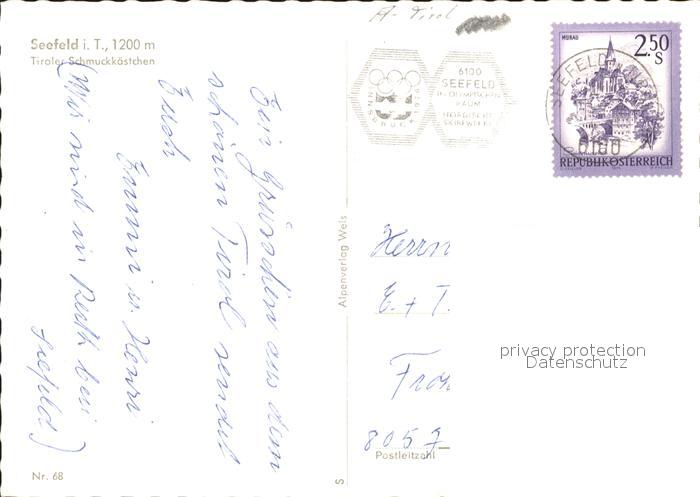 A - Tirol
Seefeld i. T., 1200 m
Tiroler Schmuckkästchen
Ein Grüsschen aus dem
schönen Tirol sendet
Euch
Emmi u. Henri
(Wir sind in Reith bei
Seefeld)
Nr. 68
Alpenverlag Wels
S
INNSBRUCK 1976
6100
SEEFELD
IM OLYMPISCHEN
RAUM
NORDISCHE
BEWERBE
MURAU
2.50
S
REPUBLIK ÖSTERREICH
SEEFELD
6100
Herrn
E. + T.
8057
Postleitzahl
privacy protection
Datenschutz